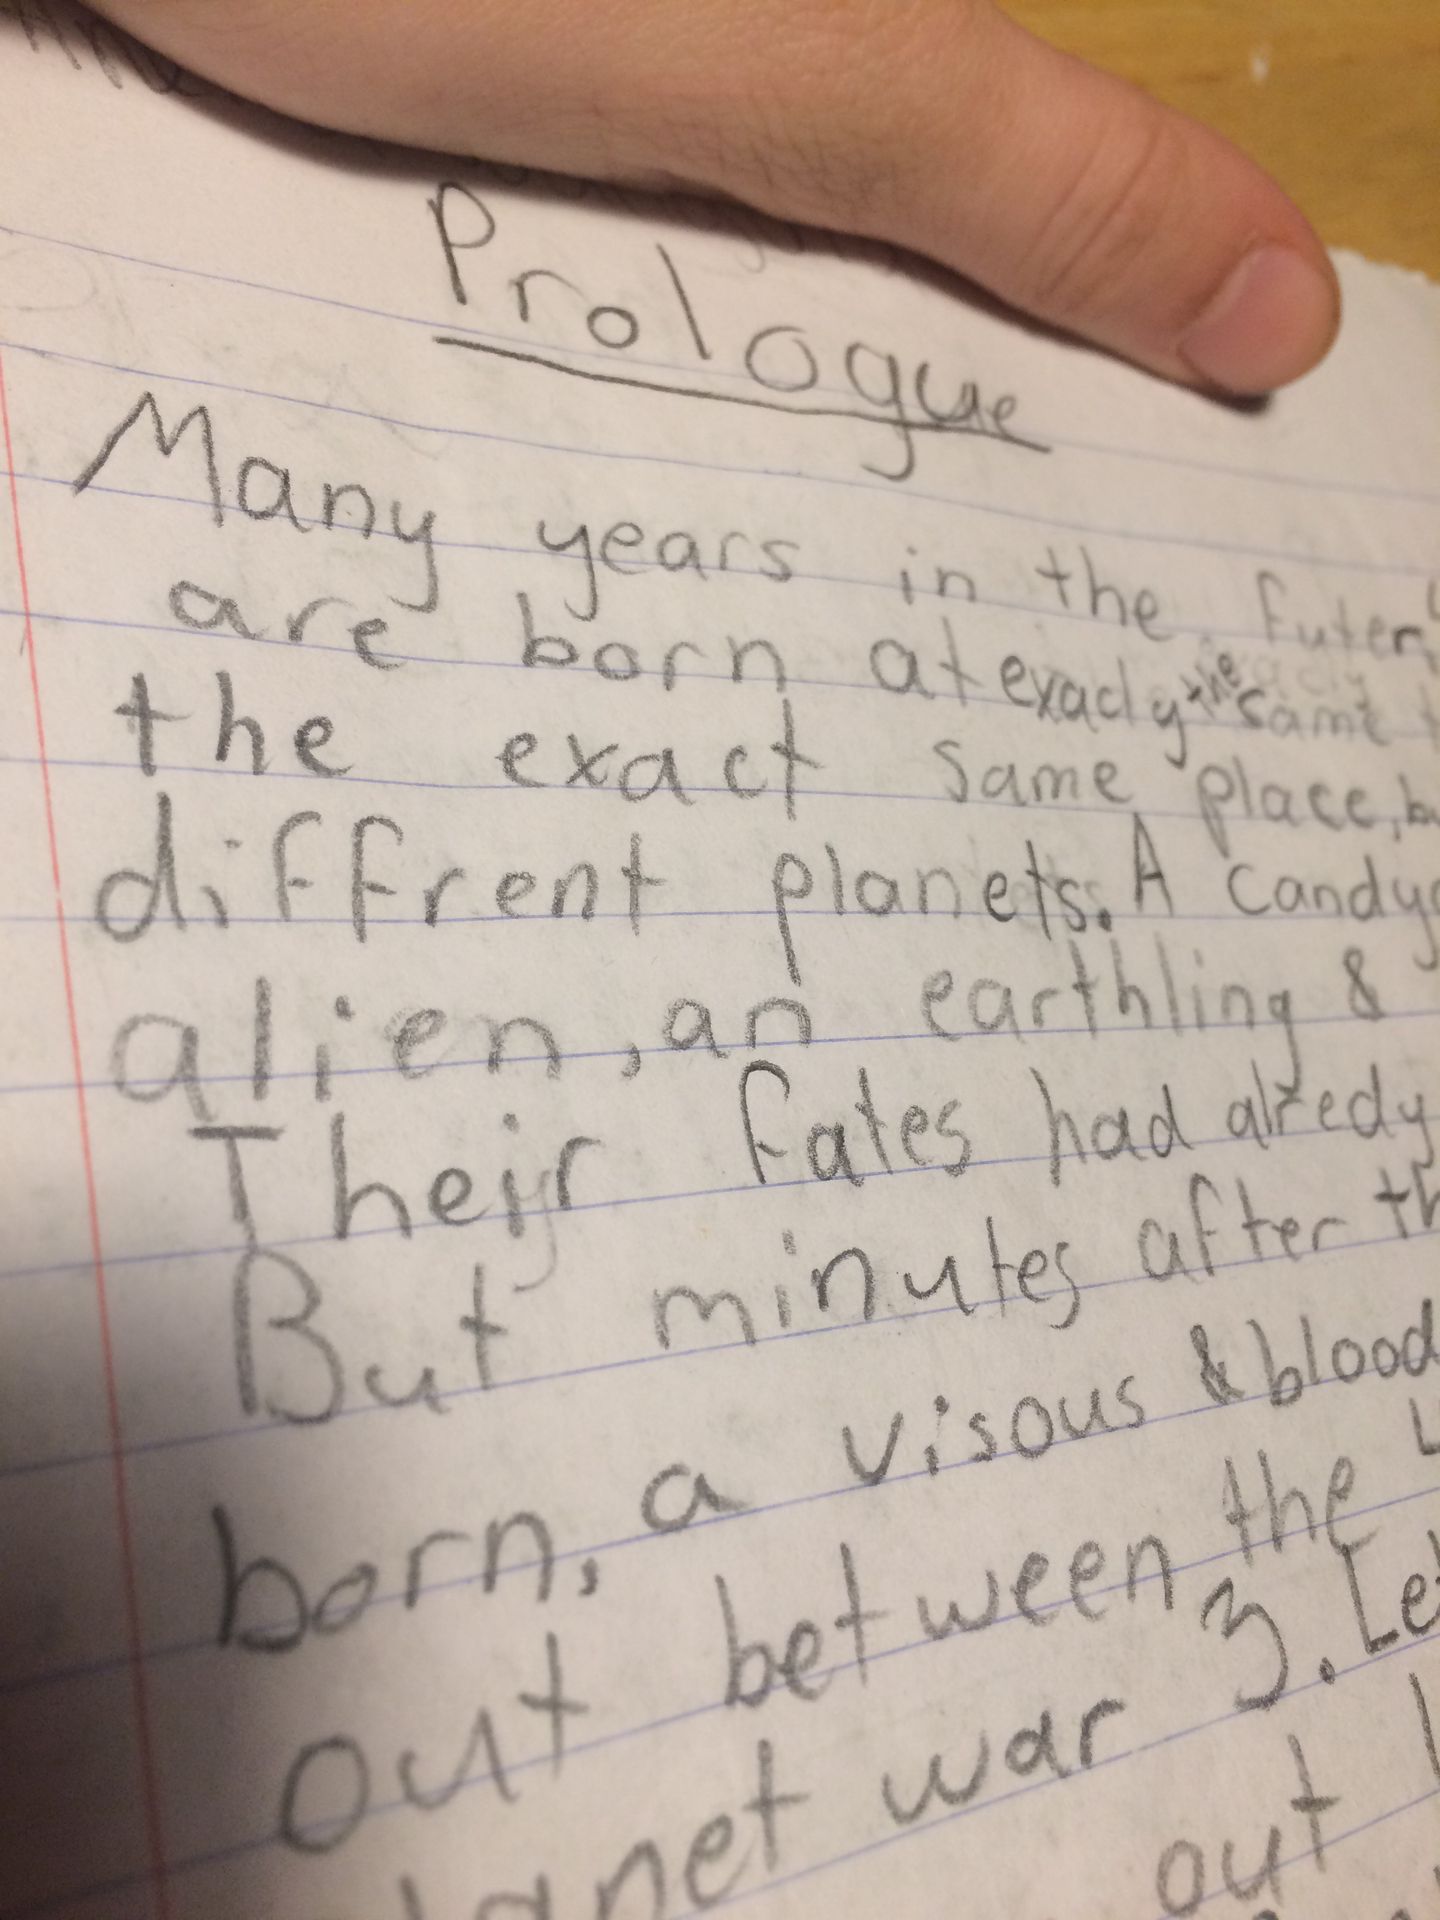 Prologue
Many years in the futer,
are born at exacly the same
the exact same place, bu
diffrent planets. A candy
alien, an earthling &
Their fates had alredy
But minutes after th
born, a visous & blood
out between the
lanet war 3. Let
out